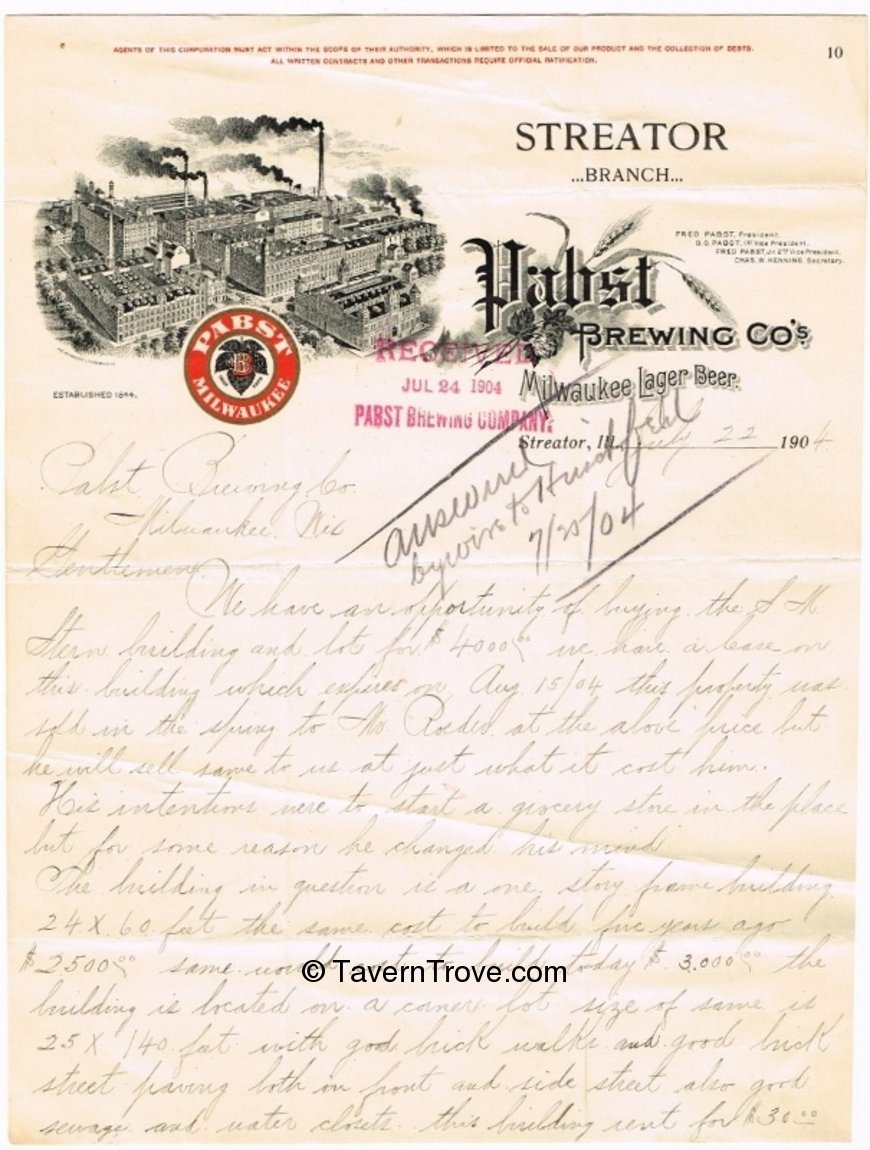 AGENTS OF THIS CORPORATION MUST ACT WITHIN THE SCOPE OF THEIR AUTHORITY, WHICH IS LIMITED TO THE SALE OF OUR PRODUCT AND THE COLLECTION OF DEBTS.
ALL WRITTEN CONTRACTS AND OTHER TRANSACTIONS REQUIRE OFFICIAL RATIFICATION.
10
STREATOR
...BRANCH...
FRED PABST, President.
G.G. PABST, 1st Vice President.
FRED PABST, Jr. 2nd Vice President.
CHAS. W. HENNING, Secretary.
Pabst
BREWING CO'S
Milwaukee Lager Beer.
PABST
B
MILWAUKEE
ESTABLISHED 1844.
RECEIVED
JUL 24 1904
PABST BREWING COMPANY.
Streator, Ill., July 22 1904
answered
by wire to
7/25/04
Pabst Brewing Co
Milwaukee, Wis
Gentlemen
We have an opportunity of buying the S M
Stern building and lot for $4000.00 we have a lease on
this building which expires on Aug 15/04 this property was
sold in the spring to Mr at the above price but
he will sell same to us at just what it cost him.
His intentions were to start a grocery store in the place
but for some reason he changed his mind
The building in question is a one story frame building
24 X 60 feet the same cost to build five years ago
$2500.00 same would cost to build today $3,000.00 the
building is located on a corner lot size of same is
25 X 140 feet with good brick walks and good brick
street paving both on front and side street also good
sewage and water closets this building rent for $30.00
© TavernTrove.com